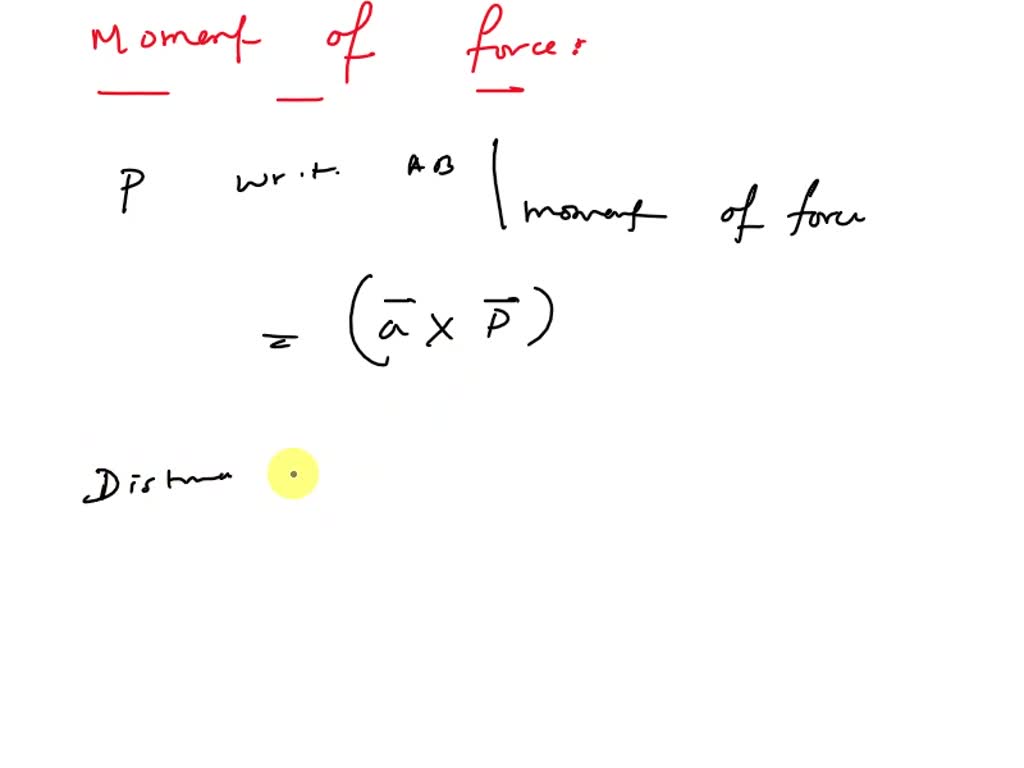 Moment of force:
P w.r.t. AB | moment of force
= (a̅ × P̅)